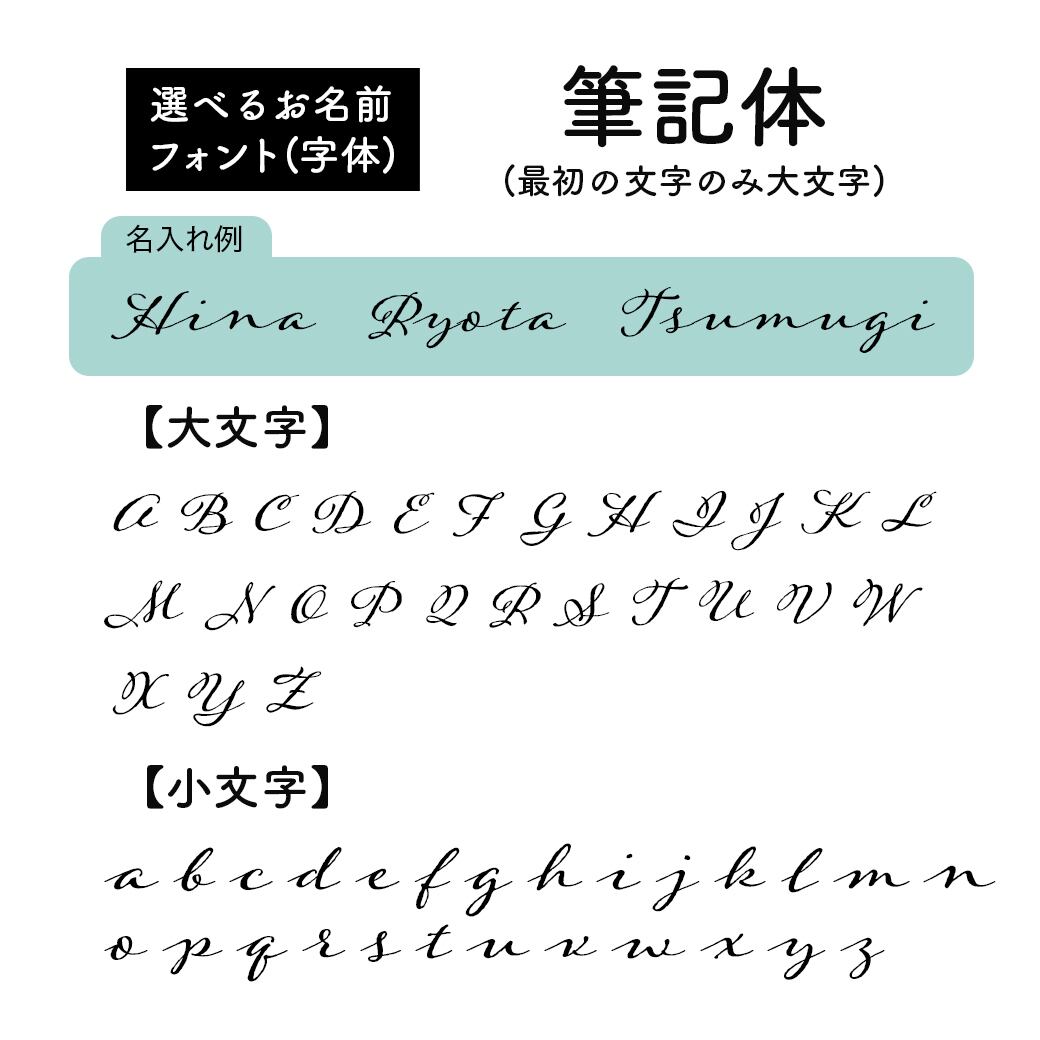 選べるお名前
フォント(字体)
筆記体
(最初の文字のみ大文字)
名入れ例
Hina Ryota Tsumugi
【大文字】
A B C D E F G H I J K L
M N O P Q R S T U V W
X Y Z
【小文字】
a b c d e f g h i j k l m n
o p q r s t u v w x y z